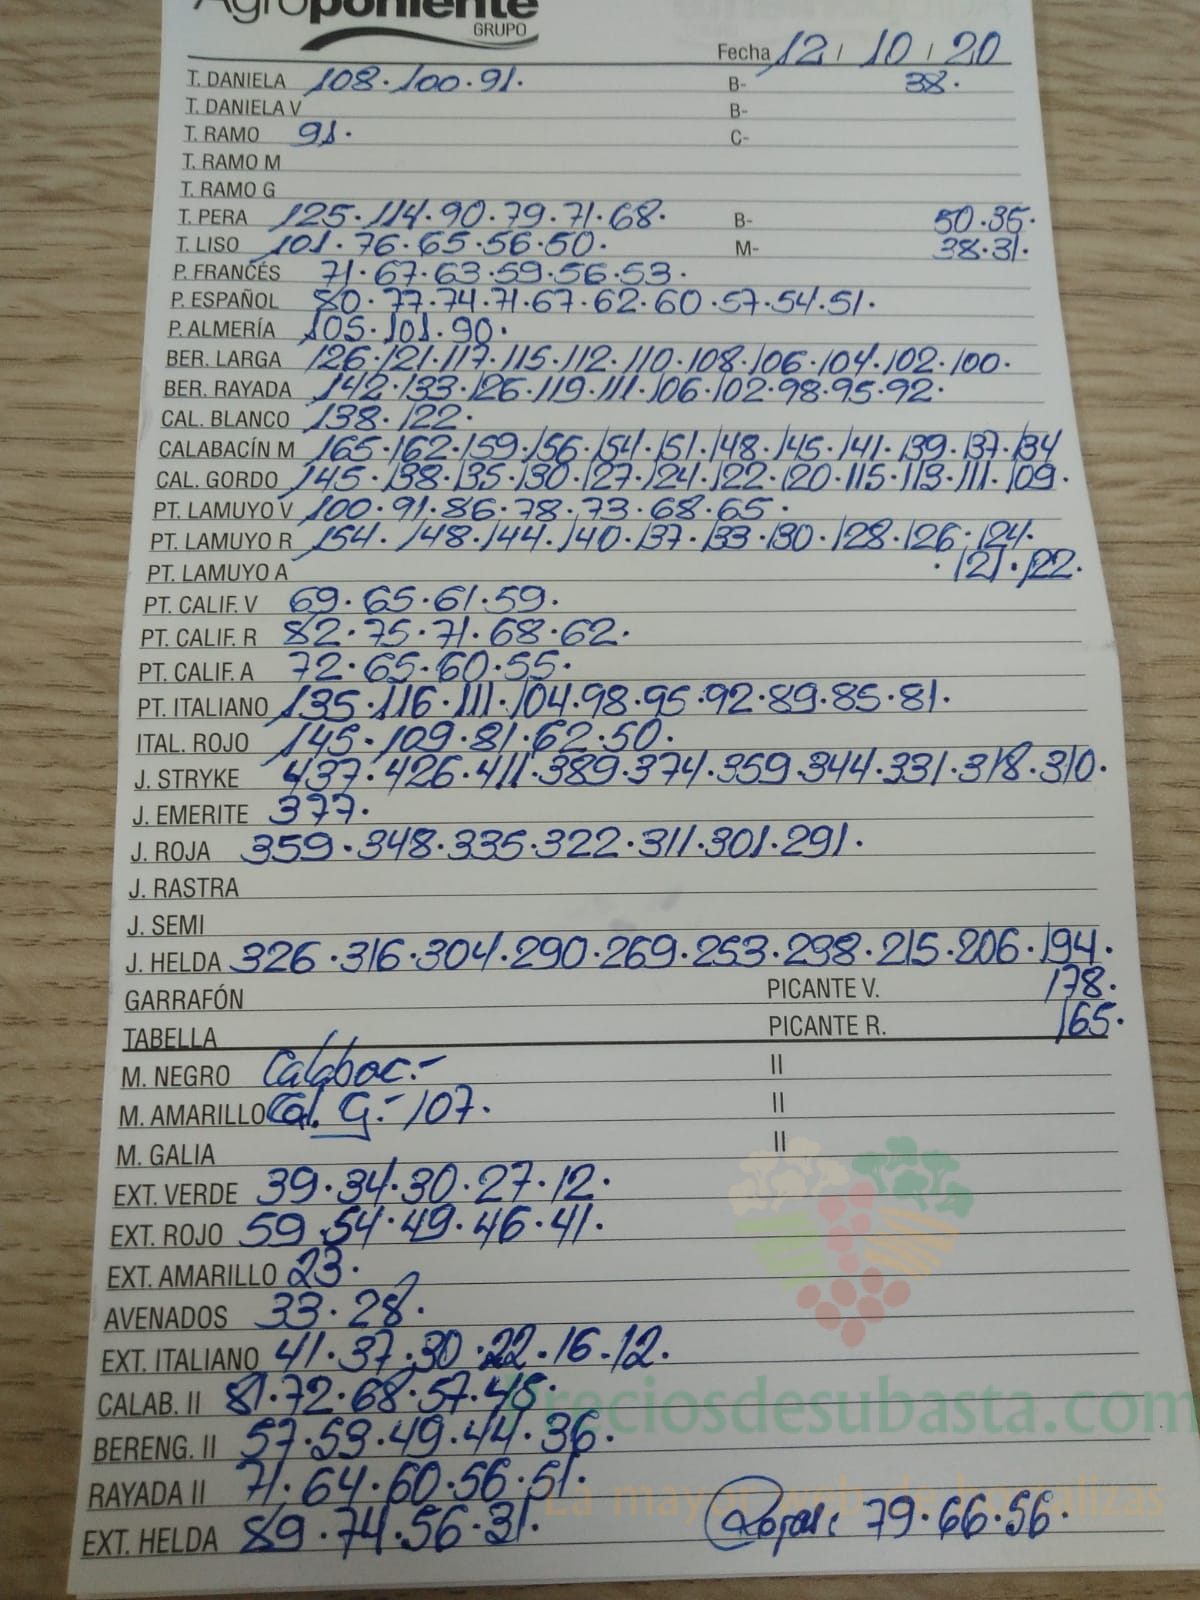 Agroponiente
GRUPO
Fecha 12 / 10 / 20
T. DANIELA 108. 100. 91. B- 38.
T. DANIELA V B-
T. RAMO 91. C-
T. RAMO M
T. RAMO G
T. PERA 125. 114. 90. 79. 71. 68. B- 50. 35.
T. LISO 101. 76. 65. 56. 50. M- 38. 31.
P. FRANCÉS 71. 67. 63. 59. 56. 53.
P. ESPAÑOL 80. 77. 74. 71. 67. 62. 60. 57. 54. 51.
P. ALMERÍA 105. 101. 90.
BER. LARGA 126. 121. 117. 115. 112. 110. 108. 106. 104. 102. 100.
BER. RAYADA 142. 133. 126. 119. 111. 106. 102. 98. 95. 92.
CAL. BLANCO 138. 122.
CALABACÍN M 165. 162. 159. 156. 154. 151. 148. 145. 141. 139. 137. 134
CAL. GORDO 145. 138. 135. 130. 127. 124. 122. 120. 115. 113. 111. 109.
PT. LAMUYO V 100. 91. 86. 78. 73. 68. 65.
PT. LAMUYO R 154. 148. 144. 140. 137. 133. 130. 128. 126. 124.
PT. LAMUYO A . 121. 122.
PT. CALIF. V 69. 65. 61. 59.
PT. CALIF. R 82. 75. 71. 68. 62.
PT. CALIF. A 72. 65. 60. 55.
PT. ITALIANO 135. 116. 111. 104. 98. 95. 92. 89. 85. 81.
ITAL. ROJO 145. 109. 81. 62. 50.
J. STRYKE 437. 426. 411. 389. 374. 359. 344. 331. 318. 310.
J. EMERITE 377.
J. ROJA 359. 348. 335. 322. 311. 301. 291.
J. RASTRA
J. SEMI
J. HELDA 326. 316. 304. 290. 269. 253. 238. 215. 206. 194.
GARRAFÓN PICANTE V. 178.
TABELLA PICANTE R. 165.
M. NEGRO Calabac.- II
M. AMARILLO Cal. G.- 107. II
M. GALIA II
EXT. VERDE 39. 34. 30. 27. 12.
EXT. ROJO 59. 54. 49. 46. 41.
EXT. AMARILLO 23.
AVENADOS 33. 28.
EXT. ITALIANO 41. 37. 30. 22. 16. 12.
CALAB. II 81. 72. 68. 57. 45.
Preciosdesubasta.com
BERENG. II 57. 53. 49. 44. 36.
RAYADA II 71. 64. 60. 56. 51.
La mayor web de hortalizas
EXT. HELDA 89. 74. 56. 31. 79. 66. 56.